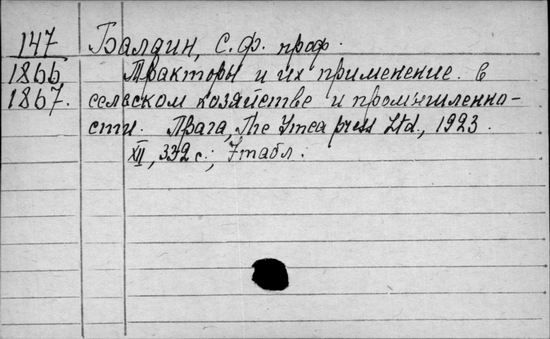 147 Балдин, С.Ф. проф.
1866 Тракторы и их применение в
1867. сельском хозяйстве и промышленно-
сти. Прага, The Ymca press Ltd., 1923.
XII, 332 с.; 7 табл.